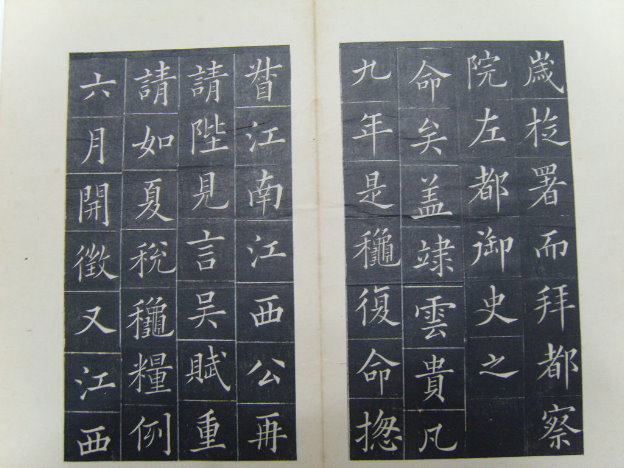 歲扵署而拜都察
院左都御史之
命矣盖䇐雲貴凡
九年是龝復命揔
督江南江西公再
請陛見言吳賦重
請如夏稅龝糧例
六月開徵又江西